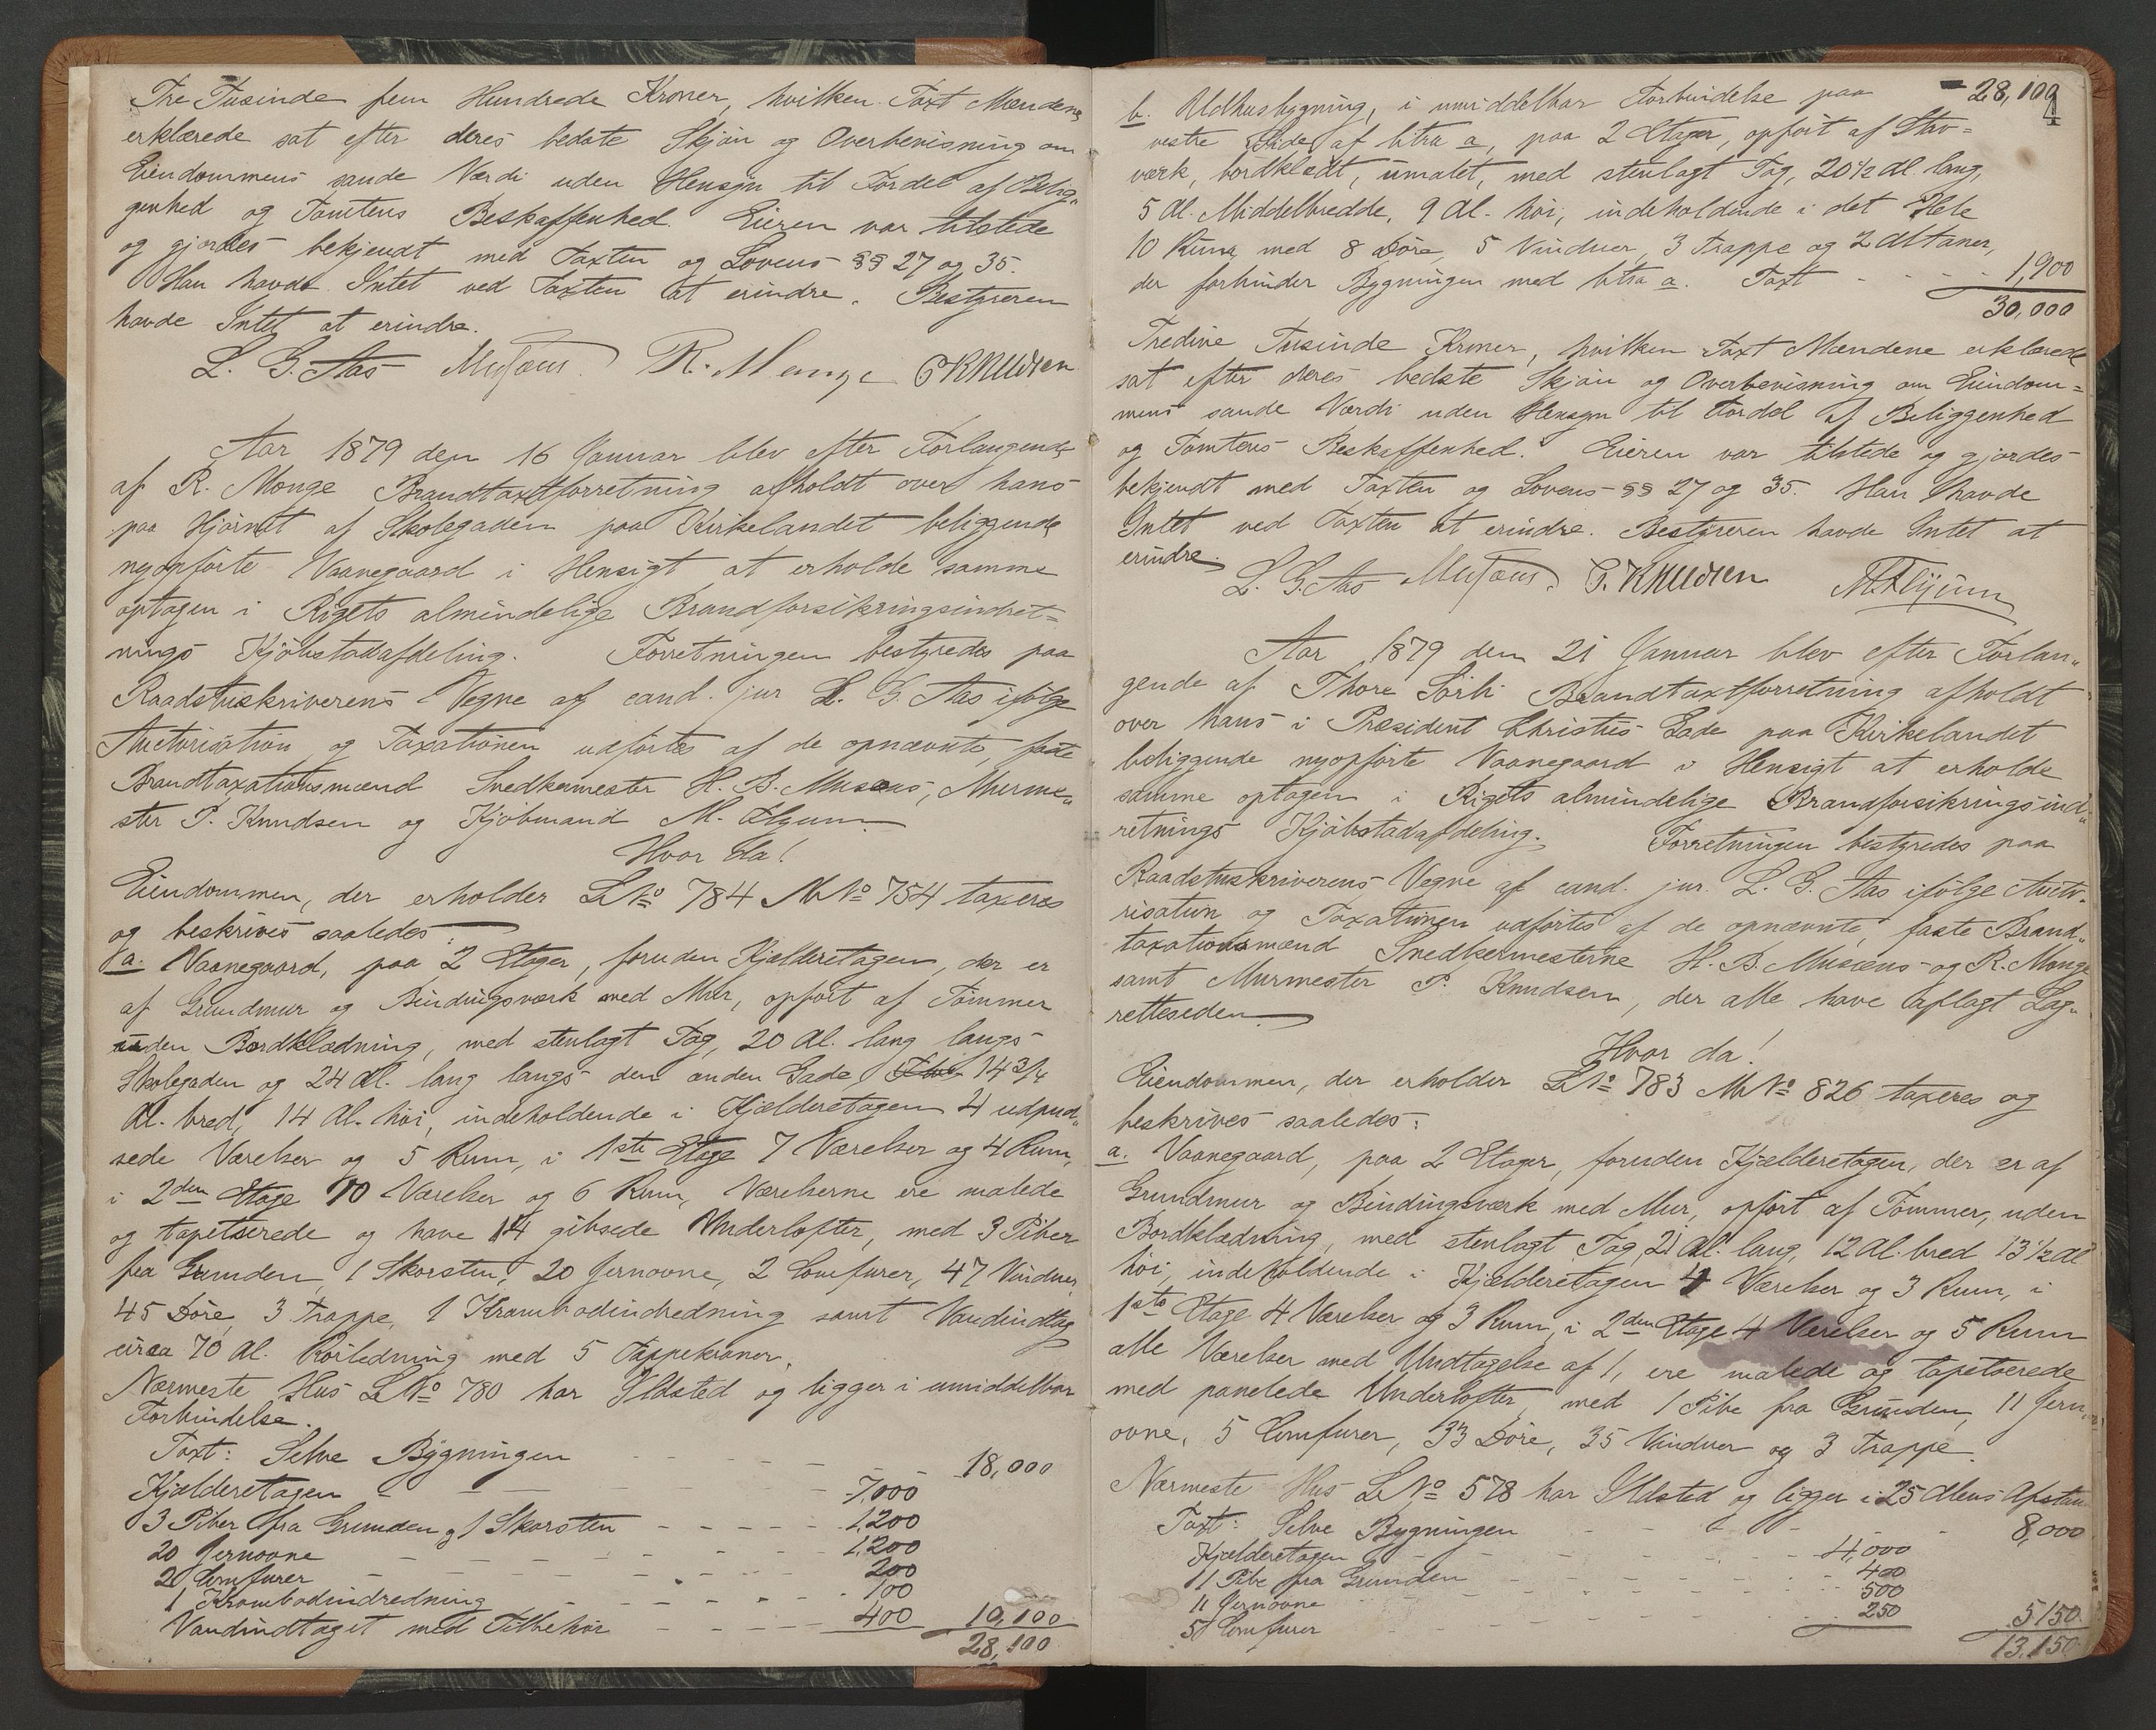 Tre Tusinde fem Hundrede Kroner, hvilken Taxt Mændene
erklærede sat efter deres bedste Skjøn og Overbevisning om
Eiendommens sande Værdi uden Hensyn til Fordel af Belig„
genhed og Tomtens Beskaffenhed. Eieren var tilstede
og gjordes bekjendt med Taxten og Lovens §§ 27 og 35.
Han havde Intet ved Taxten at erindre. Bestyreren
havde Intet at erindre.
L. G. Aas Musæus. R. Monge P Knudsen
Aar 1879 den 16 Januar blev efter Forlangende
af R. Monge Brandtaxtforretning afholdt over hans
paa Hjørnet af Skolegaden paa Kirkelandet beliggende
nyopførte Vaanegaard i Hensigt at erholde samme
optagen i Rigets almindelige Brandforsikringsindret=
nings Kjøbstadafdeling. Forretningen bestyredes paa
Raadstuskriverens Vegne af cand. jur L. G. Aas ifølge
Auctorisation og Taxationen udførtes af de opnævnte, faste
Brandtaxationsmænd Snedkermester H. B. Musæus, Murme„
ster P. Knudsen og Kjøbmand M. Flyum.
Hvor da!
Eiendommen, der erholder L№ 784 M№ 754 taxeres
og beskrives saaledes:
a. Vaanegaard, paa 2 Etager, foruden Kjælderetagen, der er
af Grundmur og Bindingsværk med Mur, opført af Tømmer
uden Bordklædning, med stenlagt Tag, 20 Al. lang langs
Skolegaden og 24 Al. lang langs den anden Gade, 14 3/4
Al. bred, 14 Al. høi, indeholdende i Kjælderetagen 4 udpud„
sede Værelser og 5 Rum, i 1ste Etage 7 Værelser og 4 Rum,
i 2den Etage 10 Værelser og 6 Rum, Værelserne ere malede
og tapetserede og have 14 gibsede Underlofter, med 3 Piber
fra Grunden, 1 Skorsten, 20 Jernovne, 2 Comfurer, 47 Vinduer,
45 Døre, 3 Trappe, 1 Krambodindredning samt Vandindtag
circa 70 Al. Rørledning med 5 Tappekraner.
Nærmeste Hus L№ 780 har Ildsted og ligger i umiddelbar
Forbindelse.
Taxt: Selve Bygningen - - - - - 18,000
Kjælderetagen - - - - 7,000
3 Piber fra Grunden og 1 Skorsten - - - - 1,200
20 Jernovne - - - - 1,200
2 Comfurer - - - - 200
1 Krambodindredning - - - - 100
Vandindtaget med Tilbehør - - - - 400 10,100
28,100
- 28,100
4
b. Udhusbygning, i umiddelbar Forbindelse paa
vestre Side af litra a, paa 2 Etager, opført af Stav=
værk, bordklædt, umalet, med stenlagt Tag, 20 1/2 Al. lang,
5 Al. Middelbredde, 9 Al. høi, indeholdende i det Hele
10 Rum, med 8 Døre, 5 Vinduer, 3 Trappe og 2 Altaner,
der forbinder Bygningen med litra a. Taxt - - - - 1,900
30,000
Tredive Tusinde Kroner, hvilken Taxt Mændene erklærede
sat efter deres bedste Skjøn og Overbevisning om Eiendom=
mens sande Værdi uden Hensyn til Fordel af Beliggenhed
og Tomtens Beskaffenhed. Eieren var tilstede og gjordes
bekjendt med Taxten og Lovens §§ 27 og 35. Han havde
Intet ved Taxten at erindre. Bestyreren havde Intet at
erindre.
L. G. Aas Musæus. P. Knudsen M Flyum
Aar 1879 den 21 Januar blev efter Forlan„
gende af Thore Sørli Brandtaxtforretning afholdt
over hans i Præsident Christies Gade paa Kirkelandet
beliggende nyopførte Vaanegaard i Hensigt at erholde
samme optagen i Rigets almindelige Brandforsikringsind„
retnings Kjøbstadafdeling. Forretningen bestyredes paa
Raadstuskriverens Vegne af cand. jur. L. G. Aas ifølge Aucto„
risation og Taxationen udførtes af de opnævnte, faste Brand„
taxationsmænd Snedkermesterne H. B. Musæus og R. Monge
samt Murmester P. Knudsen, der alle have aflagt Lag„
retteseden.
Hvor da!
Eiendommen, der erholder L№ 783 M№ 826 taxeres og
beskrives saaledes:
a. Vaanegaard, paa 2 Etager, foruden Kjælderetagen, der er af
Grundmur og Bindingsværk med Mur, opført af Tømmer, uden
Bordklædning, med stenlagt Tag, 21 Al. lang, 12 Al. bred 13 1/2 Al
høi, indeholdende i Kjælderetagen 4 Værelser og 3 Rum, i
1ste Etage 4 Værelser og 3 Rum, i 2den Etage 4 Værelser og 5 Rum
alle Værelser med Undtagelse af 1, ere malede og tapetserede
med panelede Underlofter, med 1 Pibe fra Grunden, 11 Jern„
ovne, 5 Comfurer, 33 Døre, 35 Vinduer og 3 Trappe.
Nærmeste Hus L№ 578 har Ildsted og ligger i 25 Alens Afstan
Taxt: Selve Bygningen - - - - 8,000
Kjælderetagen - - - - 4,000
1 Pibe fra Grunden - - - - 400
11 Jernovne - - - - 500
5 Comfurer - - - - 250 5150.
13,150.